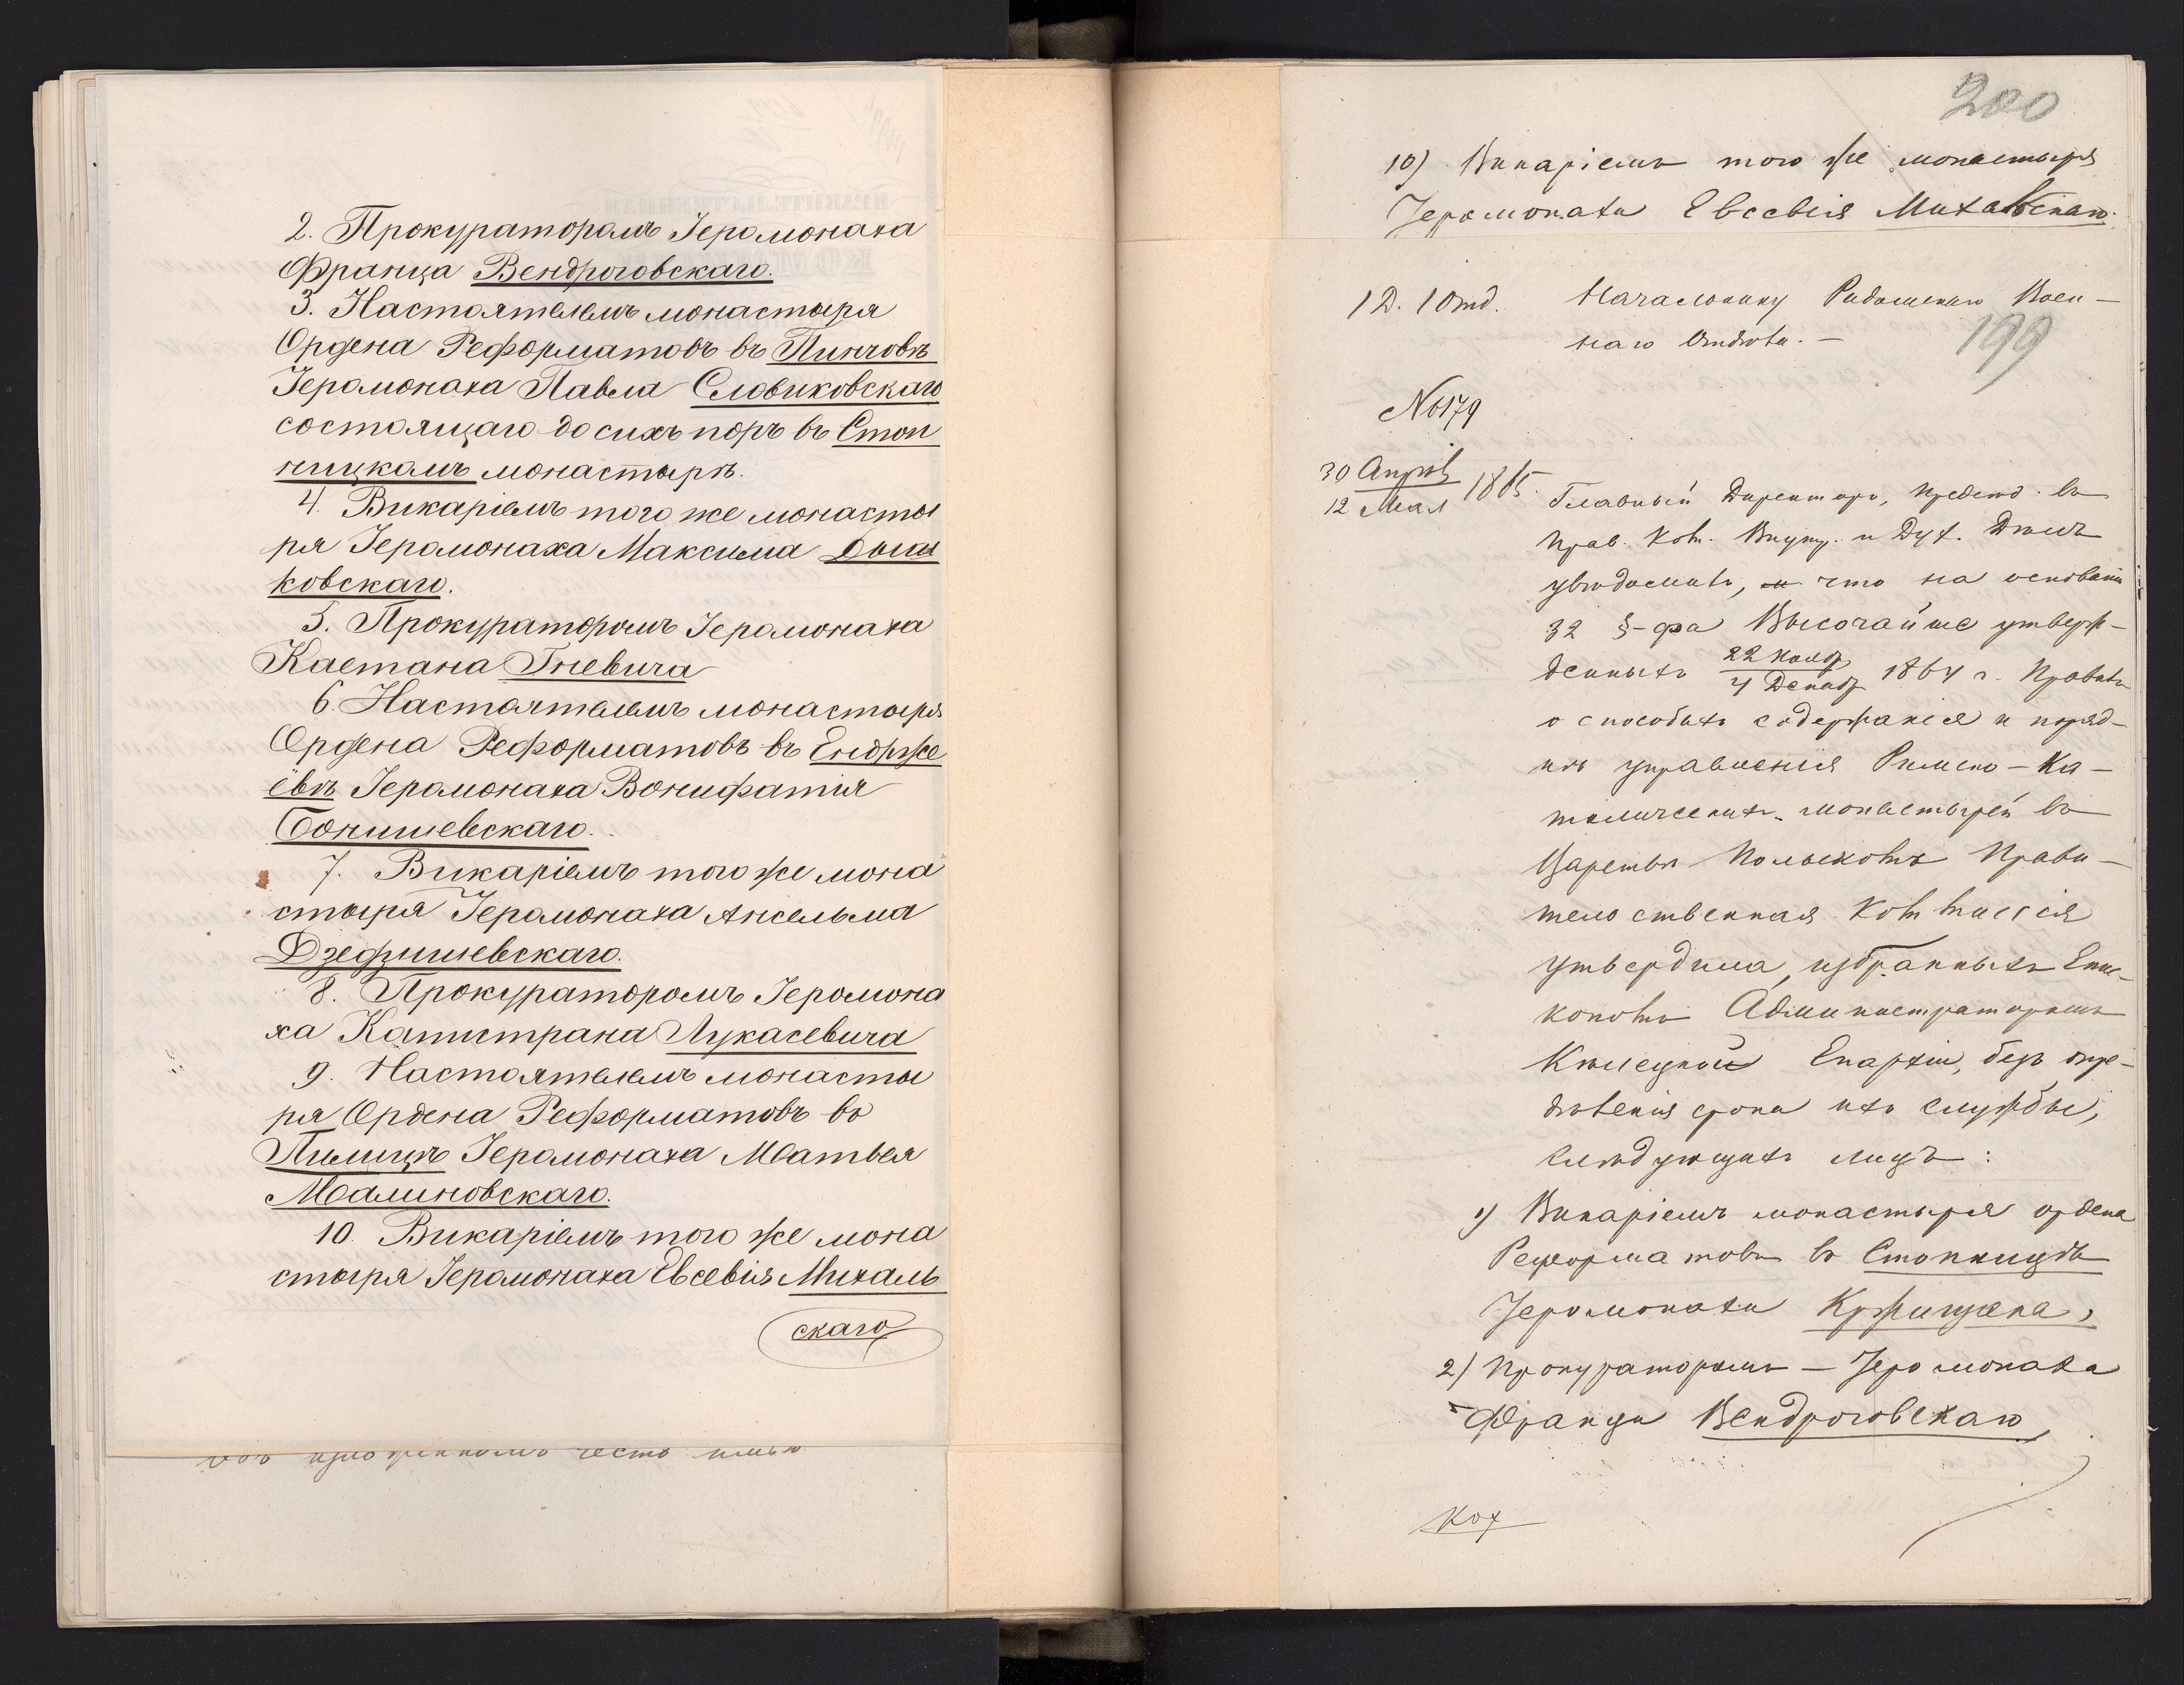 2. Прокураторомъ Іеромонаха
Франца Вендроговскаго.
3. Настоятелемъ монастыря
Ордена Реформатовъ въ Пинчовѣ
Іеромонаха Павла Словиковскаго
состоящаго до сихъ поръ въ Стоп
ницкомъ монастырѣ.
4. Викаріемъ того же монасты
ря Іеромонаха Максима
ковскаго.
5. Прокураторомъ Іеромонаха
Каетана Гневича
6. Настоятелемъ монастыря
Ордена Реформатовъ въ Ендрже
евѣ Іеромонаха Вонифатія
Бонишевскаго.
7. Викаріемъ того же мона
стыря Іеромонаха Ансельма
Дзедзишевскаго.
8. Прокураторомъ Іеромона
ха Капистрана Лукасевича
9. Настоятелемъ монасты
ря Ордена Реформатовъ въ
Пилицѣ Іеромонаха Матвея
Малиновскаго.
10. Викаріемъ того же мона
стыря Іеромонаха Евсевія Михаль
скаго
изложенномъ честь имѣю
200
10) Викаріемъ того же монастыря
Іеромонаха Евсевія Михальскаго.
1 Д. 1 Отд. Начальнику Радомскаго Воен-
наго Отдѣла. —
199
№ 6179
30 Апрѣл
12 Мая 1865.
Главный Директоръ, предсѣд. въ
Прав. Ком. Внутр. и Дух. Дѣлъ
увѣдомилъ, что на основаніи
32 §-фа Высочайше утверж-
денныхъ 22 Нояб / 4 Декаб 1864 г. Правилъ
о способахъ содержанія и поряд-
кѣ управленія Римско-Ка-
толическихъ монастырей въ
Царствѣ Польскомъ Прави-
тельственная Коммиссія
утвердила, избранныхъ Епис-
копомъ Администраторомъ
Кѣлецкой Епархіи, безъ опре-
дѣленія срока ихъ службы,
слѣдующихъ лицъ:
1) Викаріемъ монастыря ордена
Реформатовъ въ Стопницѣ
Іеромонаха Кржищана,
2) Прокураторомъ — Іеромонаха
Франца Вендроговскаго,